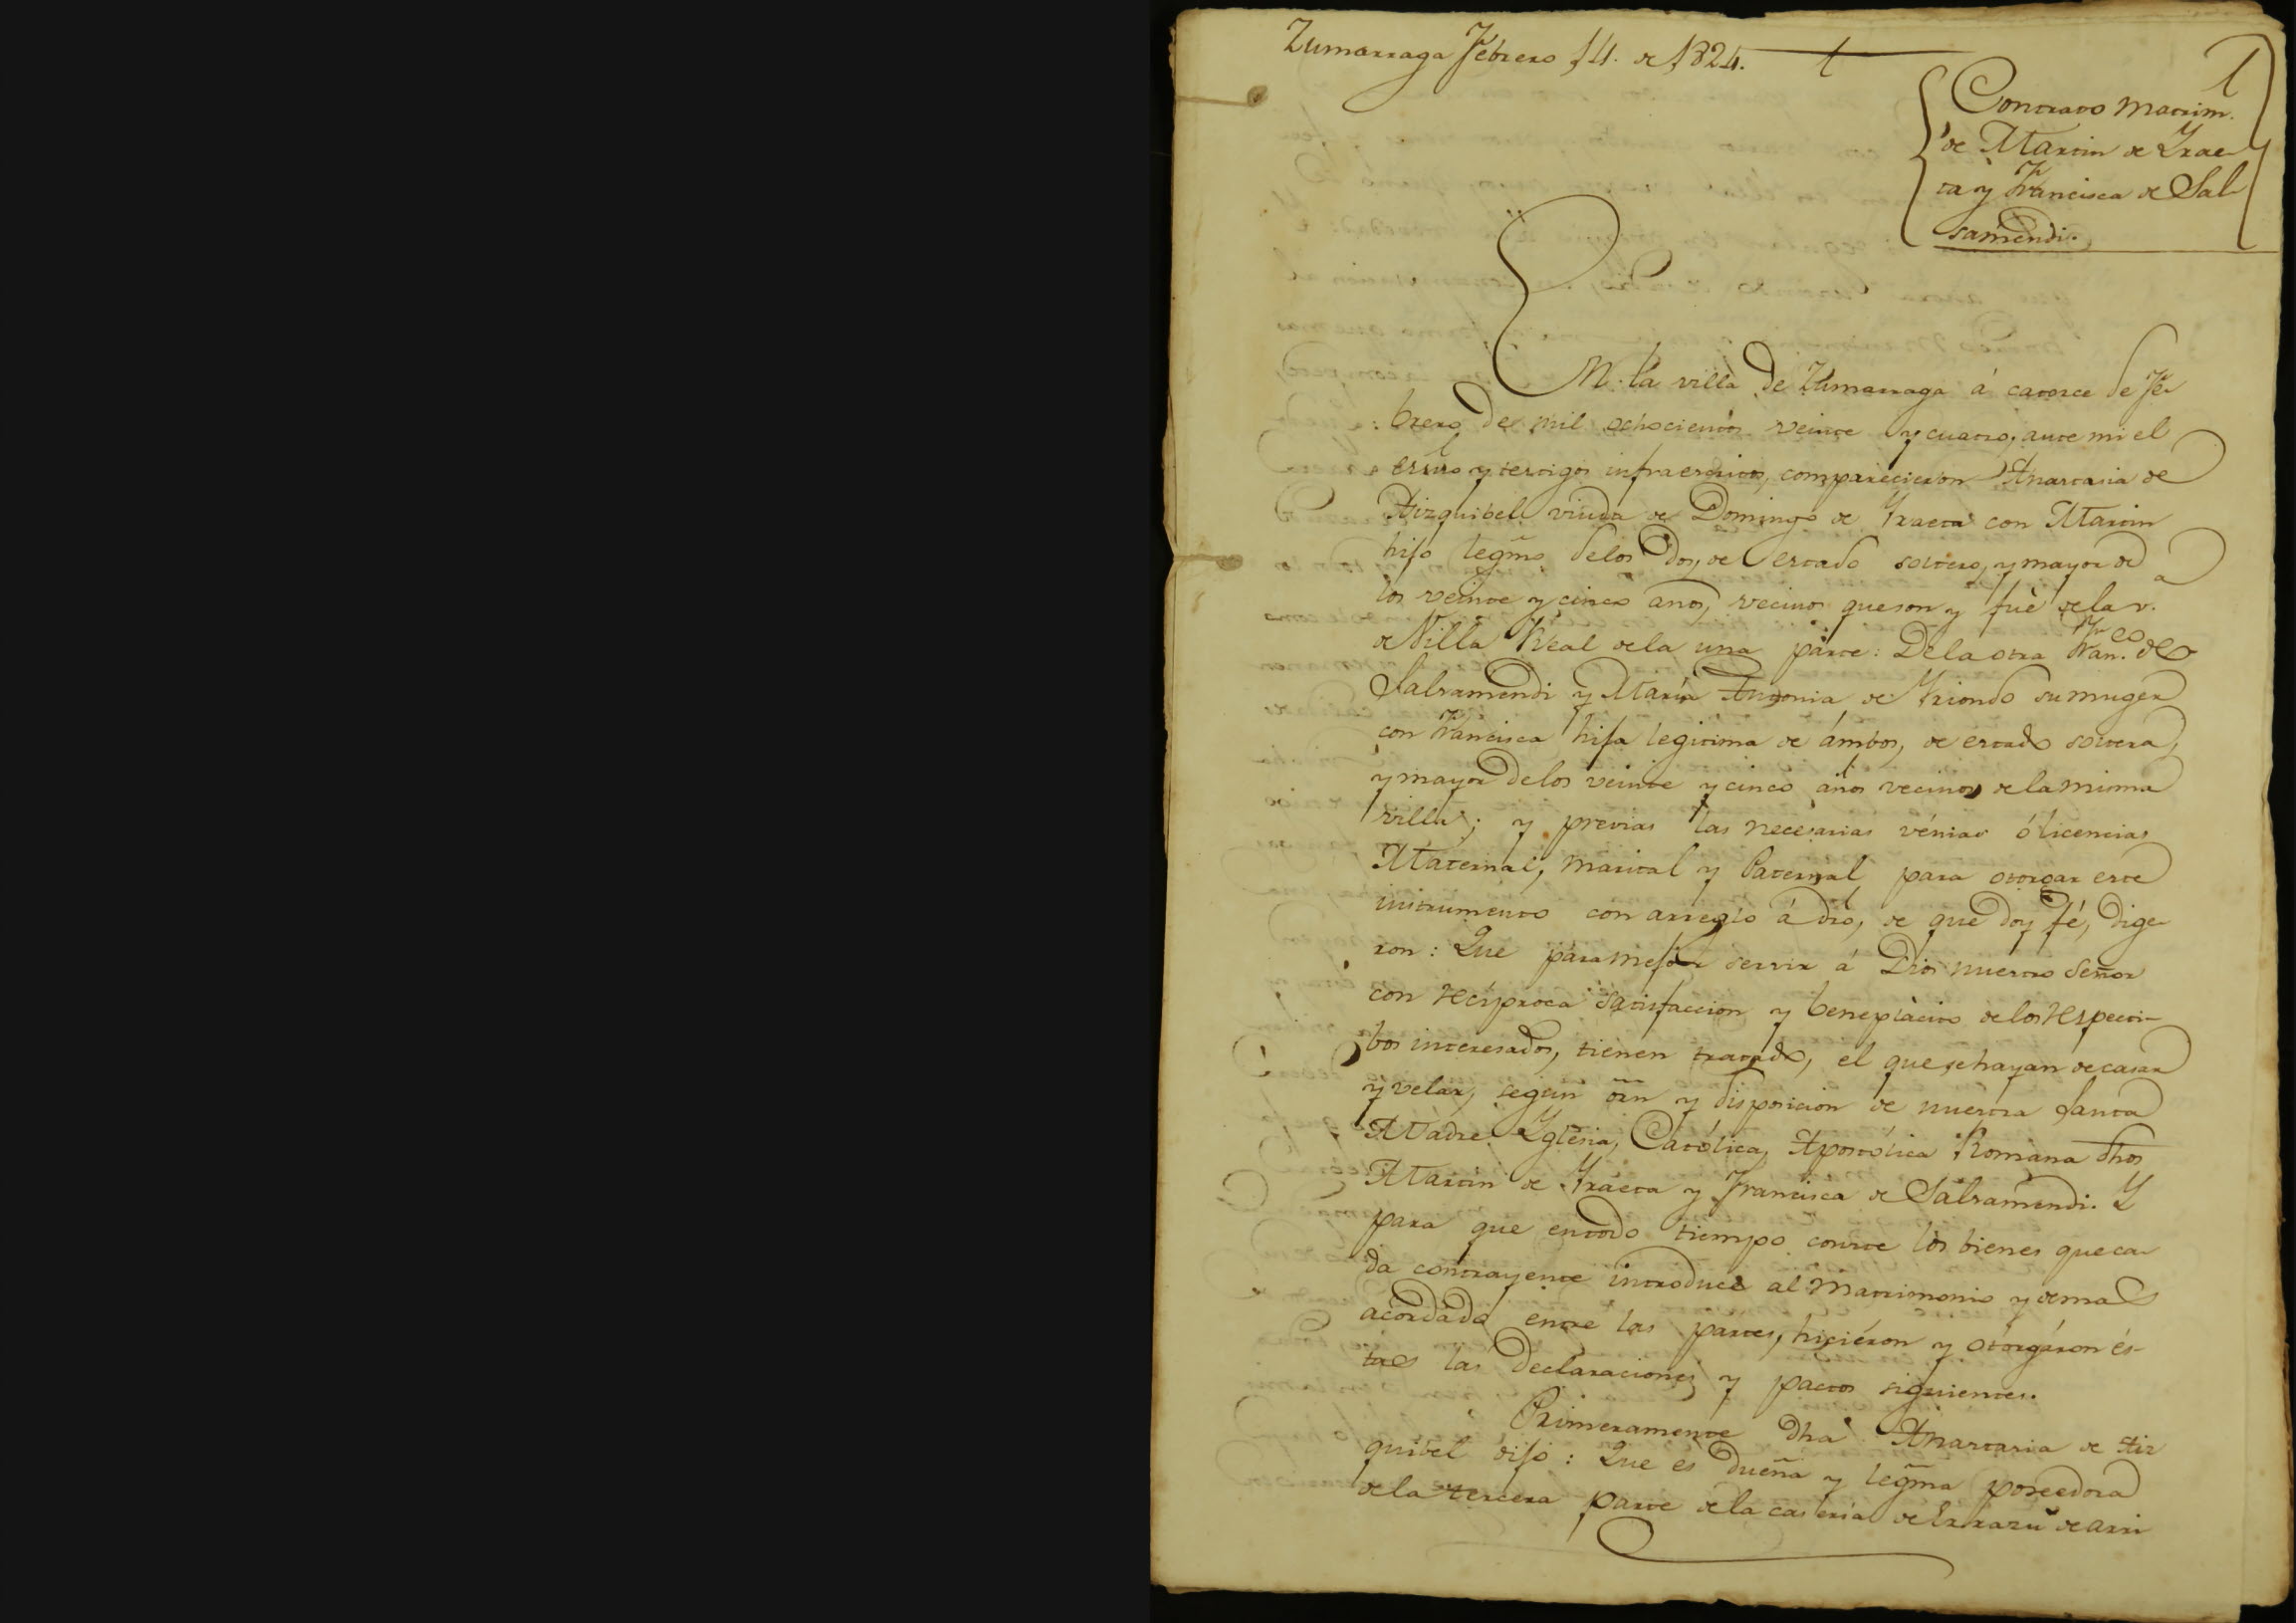 Zumarraga Febrero 14. de 1824.
1
Contrato Matrim.
de Martin de Yrae-
ta y Francisca de Sal-
samendi.
En la villa de Zumarraga á catorce de Fe-
brero de mil ochocientos veinte y cuatro, ante mi el
esno y testigos infraescritos, comparecieron Anastasia de
Aizquibel viuda de Domingo de Yraeta con Martin
hijo legmo delos dos, de estado soltero, y mayor de
los veinte y cinco años, vecinos que son y fué de la v.a
de Villa Real dela una parte: Dela otra Fran.co de
Salsamendi y María Antonia de Yriondo su muger
con Francisca hija legitima de ámbos, de estado soltera,
y mayor delos veinte y cinco años vecinos dela misma
villa; y previas las necesarias vénias ó licencias
Maternal, marital y Paternal para otorgar este
instrumento con arreglo á dro, de que doy fé, dige-
ron: Que para mejor servir á Dios nuestro Señor
con recíproca satisfaccion y beneplácito delos respecti-
bos interesados, tienen tratado, el que se hayan de casar
y velar, segun orn y disposicion de nuestra Santa
Madre Yglesia, Católica, Apostólica Romana dhos
Martin de Yraeta y Francisca de Salsamendi. Y
para que entodo tiempo conste los bienes que ca-
da contrayente introduce al Matrimonio y demas
acordado entre las partes, hiciéron y otorgáron és-
tas las declaraciones y pactos siguientes.
Primeramente dha Anastasia de Aiz-
quibel dijo: Que és dueña y legma poseedora
dela tercera parte dela caseria de Errazu de arri